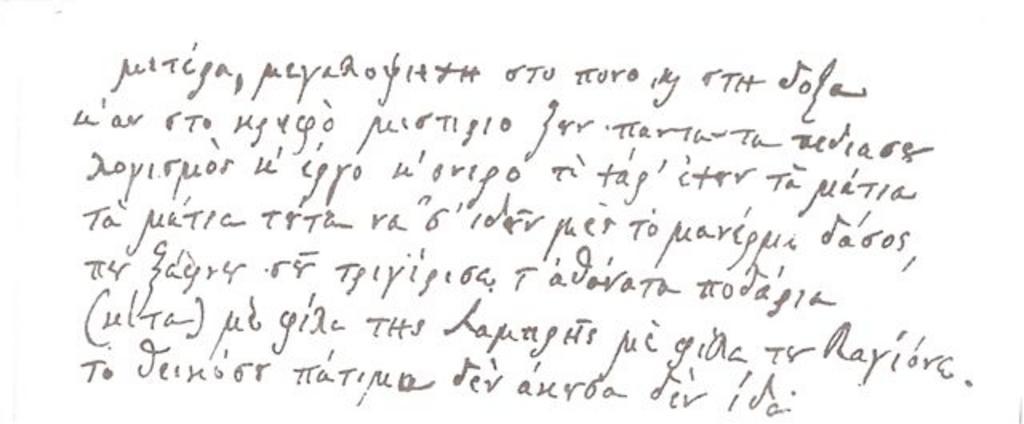 μιτέρα, μεγαλοψιχη στο πονο κ̀ στη δοξα
κ' αν στο κρυφὸ μιστιριο ζουν παντα τα πεδιασου
λογισμὸς κ' έργο κ' όνιρο τὶ χάρ' έχουν τὰ μάτια
τὰ μάτια τουτα να σ' ιδουν μες το πανέρμο δάσος,
που ξάφνου σου τριγίρισε τ' αθάνατα ποδάρια
(κίτα) μὲ φίλα της Λαμπρῆς μὲ φίλα του Βαγιόνε.
τὸ θεικόσου πάτιμα δὲν άκουσα δὲν ίδα